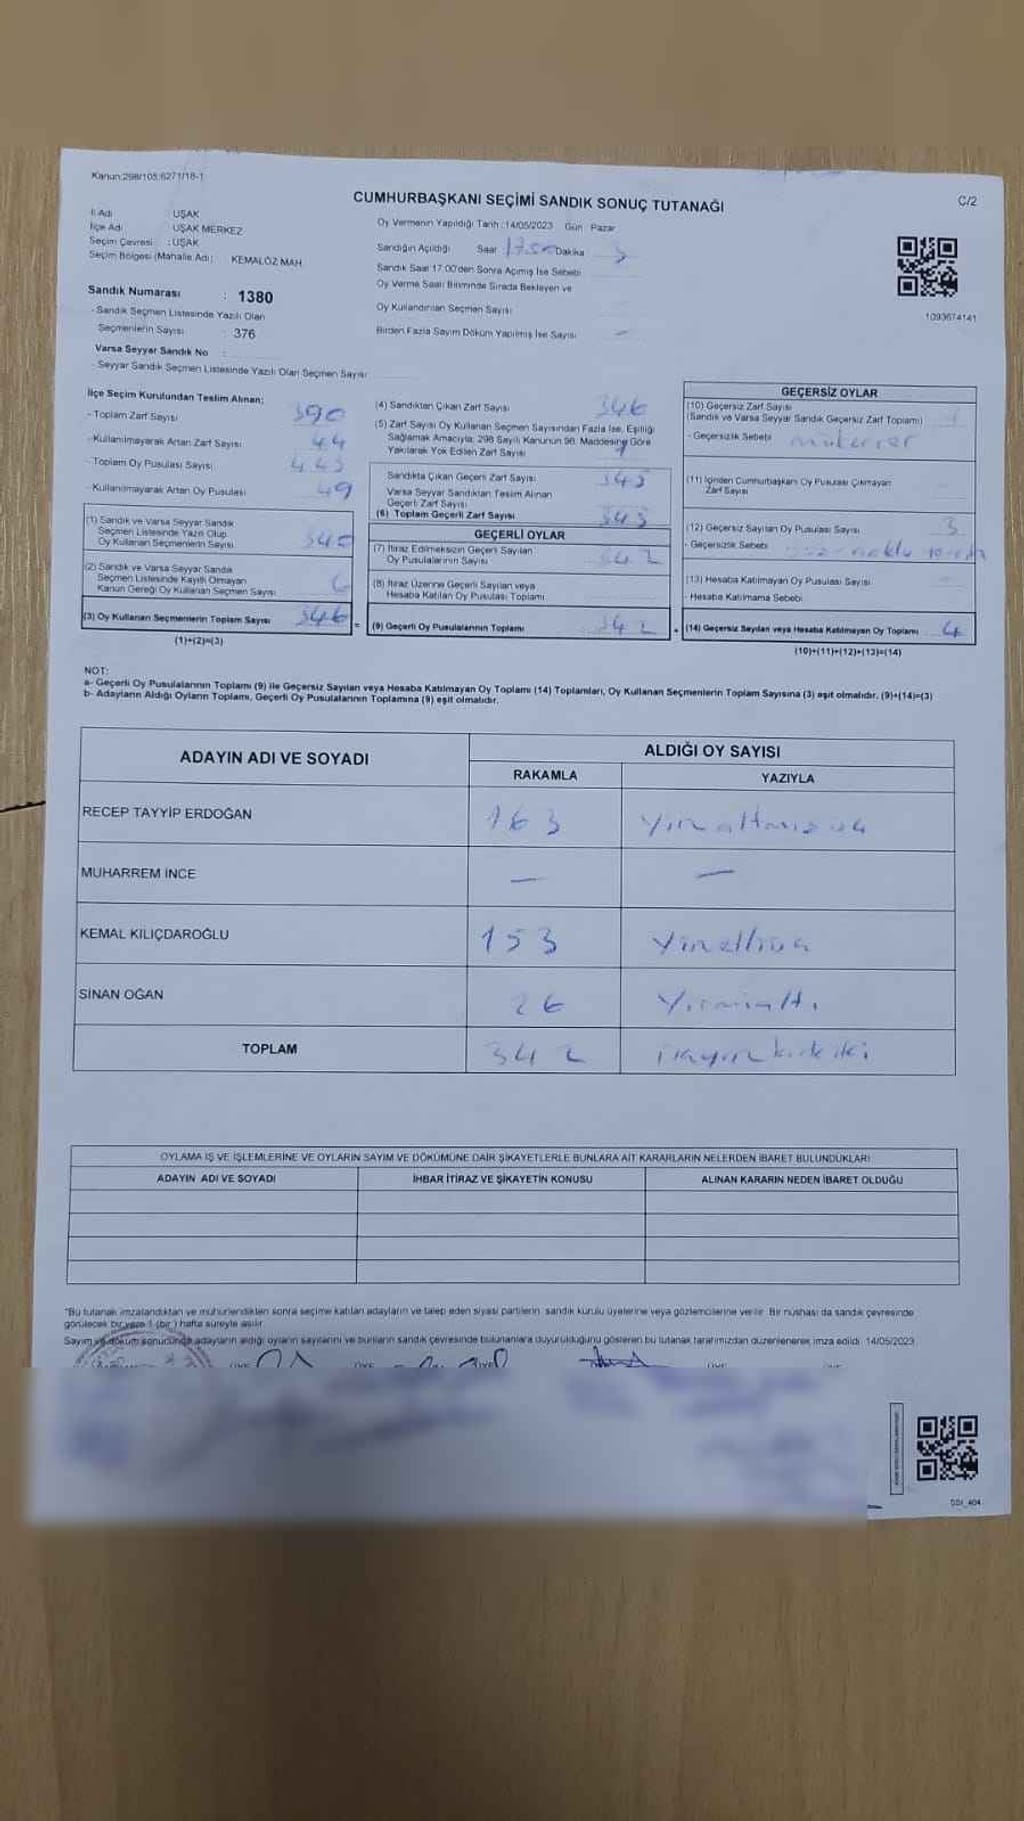 Kanun:298/105:6271/18-1
CUMHURBAŞKANI SEÇİMİ SANDIK SONUÇ TUTANAĞI
C/2
İl Adı : UŞAK
İlçe Adı : UŞAK MERKEZ
Seçim Çevresi : UŞAK
Seçim Bölgesi (Mahalle Adı) : KEMALÖZ MAH.
Oy Vermenin Yapıldığı Tarih : 14/05/2023 Gün : Pazar
Sandığın Açıldığı Saat Dakika
Sandık Saat 17:00'den Sonra Açılmış İse Sebebi
Oy Verme Saati Bitiminde Sırada Bekleyen ve
Oy Kullandırılan Seçmen Sayısı
Birden Fazla Sayım Döküm Yapılmış İse Sayısı
1093674141
Sandık Numarası : 1380
- Sandık Seçmen Listesinde Yazılı Olan
Seçmenlerin Sayısı : 376
Varsa Seyyar Sandık No :
- Seyyar Sandık Seçmen Listesinde Yazılı Olan Seçmen Sayısı
İlçe Seçim Kurulundan Teslim Alınan;
- Toplam Zarf Sayısı 390
- Kullanılmayarak Artan Zarf Sayısı 44
- Toplam Oy Pusulası Sayısı
- Kullanılmayarak Artan Oy Pusulası 49
(1) Sandık ve Varsa Seyyar Sandık
Seçmen Listesinde Yazılı Olup
Oy Kullanan Seçmenlerin Sayısı 340
(2) Sandık ve Varsa Seyyar Sandık
Seçmen Listesinde Kayıtlı Olmayan
Kanun Gereği Oy Kullanan Seçmen Sayısı 6
(3) Oy Kullanan Seçmenlerin Toplam Sayısı 346
(1)+(2)=(3)
(4) Sandıktan Çıkan Zarf Sayısı 346
(5) Zarf Sayısı Oy Kullanan Seçmen Sayısından Fazla İse, Eşitliği
Sağlamak Amacıyla; 298 Sayılı Kanunun 98. Maddesine Göre
Yakılarak Yok Edilen Zarf Sayısı
Sandıkta Çıkan Geçerli Zarf Sayısı 345
Varsa Seyyar Sandıktan Teslim Alınan
Geçerli Zarf Sayısı
(6) Toplam Geçerli Zarf Sayısı
GEÇERLİ OYLAR
(7) İtiraz Edilmeksizin Geçerli Sayılan
Oy Pusulalarının Sayısı 342
(8) İtiraz Üzerine Geçerli Sayılan veya
Hesaba Katılan Oy Pusulası Toplamı
= (9) Geçerli Oy Pusulalarının Toplamı 342
GEÇERSİZ OYLAR
(10) Geçersiz Zarf Sayısı
(Sandık ve Varsa Seyyar Sandık Geçersiz Zarf Toplamı) 1
- Geçersizlik Sebebi mükerrer
(11) İçinden Cumhurbaşkanı Oy Pusulası Çıkmayan
Zarf Sayısı
(12) Geçersiz Sayılan Oy Pusulası Sayısı 3
- Geçersizlik Sebebi
(13) Hesaba Katılmayan Oy Pusulası Sayısı
- Hesaba Katılmama Sebebi
+ (14) Geçersiz Sayılan veya Hesaba Katılmayan Oy Toplamı 4
(10)+(11)+(12)+(13)=(14)
NOT:
a- Geçerli Oy Pusulalarının Toplamı (9) ile Geçersiz Sayılan veya Hesaba Katılmayan Oy Toplamı (14) Toplamları, Oy Kullanan Seçmenlerin Toplam Sayısına (3) eşit olmalıdır. (9)+(14)=(3)
b- Adayların Aldığı Oyların Toplamı, Geçerli Oy Pusulalarının Toplamına (9) eşit olmalıdır.
ADAYIN ADI VE SOYADI
ALDIĞI OY SAYISI
RAKAMLA YAZIYLA
RECEP TAYYİP ERDOĞAN 163 Yüzaltmışüç
MUHARREM İNCE — —
KEMAL KILIÇDAROĞLU 153 Yüzelliüç
SİNAN OĞAN 26 Yirmialtı
TOPLAM 342 üçyüzkırkiki
OYLAMA İŞ VE İŞLEMLERİNE VE OYLARIN SAYIM VE DÖKÜMÜNE DAİR ŞİKAYETLERLE BUNLARA AİT KARARLARIN NELERDEN İBARET BULUNDUKLARI
ADAYIN ADI VE SOYADI İHBAR İTİRAZ VE ŞİKAYETİN KONUSU ALINAN KARARIN NEDEN İBARET OLDUĞU
"Bu tutanak imzalandıktan ve mühürlendikten sonra seçime katılan adayların ve talep eden siyasi partilerin sandık kurulu üyelerine veya gözlemcilerine verilir. Bir nüshası da sandık çevresinde
görülecek bir yere 1 (bir) hafta süreyle asılır.
Sayım ve döküm sonucunda adayların aldığı oyların sayılarını ve bunların sandık çevresinde bulunanlara duyurulduğunu gösteren bu tutanak tarafımızdan düzenlenerek imza edildi. 14/05/2023